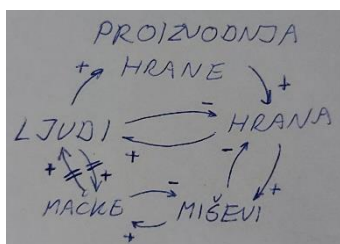 PROIZVODNJA
+ HRANE +
LJUDI - + HRANA
+ + - +
MAČKE - + MIŠEVI